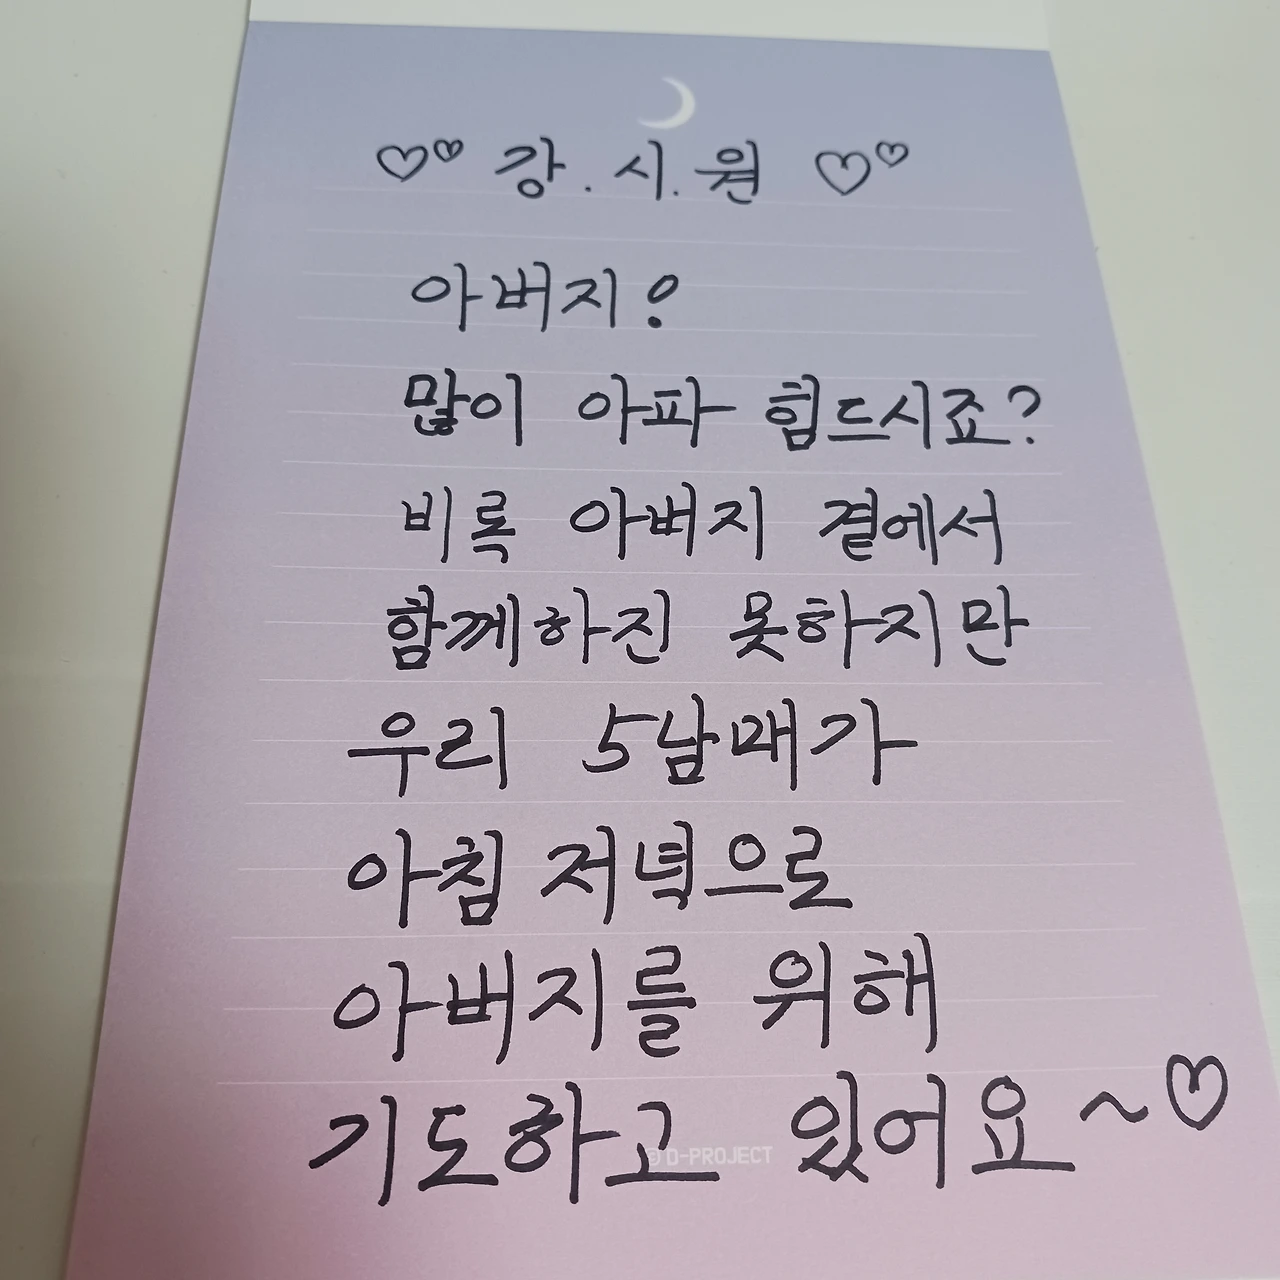 ♡♡ 강.시.원 ♡♡
아버지!
많이 아파 힘드시죠?
비록 아버지 곁에서
함께하진 못하지만
우리 5남매가
아침 저녁으로
아버지를 위해
기도하고 있어요~♡
© D-PROJECT